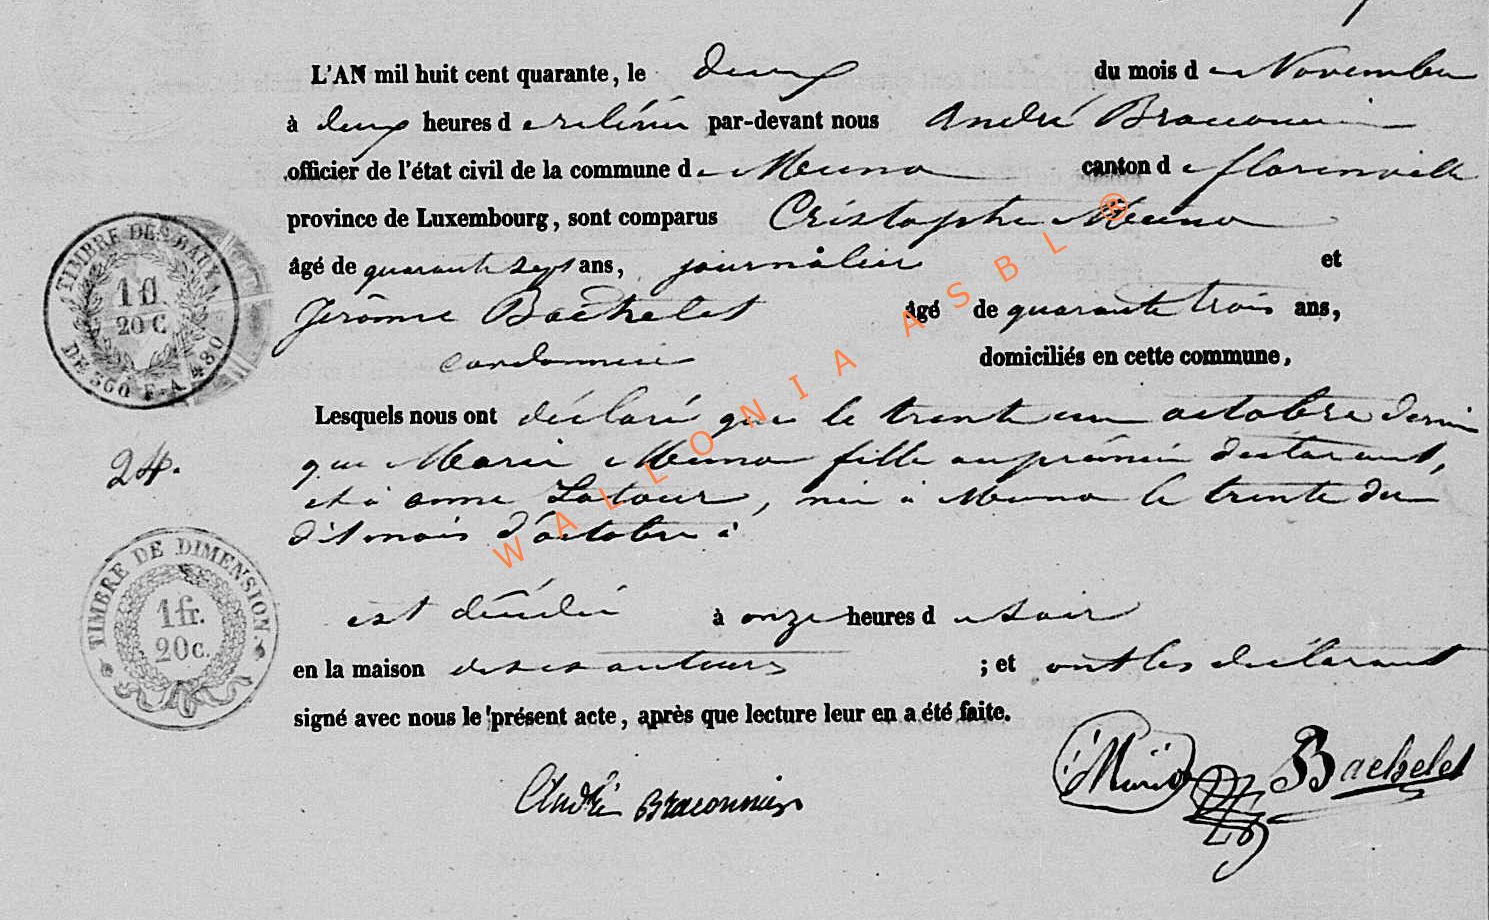 L'AN mil huit cent quarante, le deux du mois de Novembre
à deux heures de relévée par-devant nous André Braconnier
officier de l'état civil de la commune de Muno canton de florenville
province de Luxembourg, sont comparus Cristophe Muno
âgé de quarante sept ans, journalier et
Jerôme Bachelet âgé de quarante trois ans,
cordonnier domiciliés en cette commune,
Lesquels nous ont déclaré que le trente un octobre dernier
que Marie Muno fille au prémier déclarant,
et à anne Latour, née à Muno le trente du
dit mois d'octobre à
est décédée à onze heures de soir
en la maison de ses auteurs ; et ont les déclarant
signé avec nous le présent acte, après que lecture leur en a été faite.
André Braconnier Muno Bachelet
TIMBRE DES BAUX
10
20 C
DE 500 F. A 480
24.
TIMBRE DE DIMENSION.
1 fr.
20 c.
WALLONIA ASBL ®